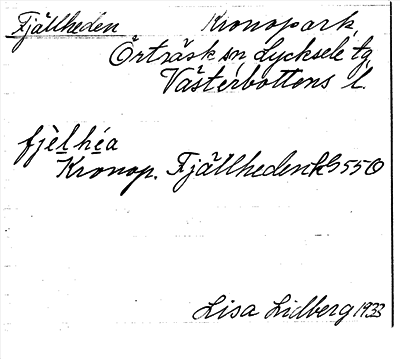 Fjällheden Kronopark
Örträsk sn Lycksele tg
Västerbottens l.
fjèlhéa
Kronop. Fjällheden kB 550
Lisa Lidberg 1933